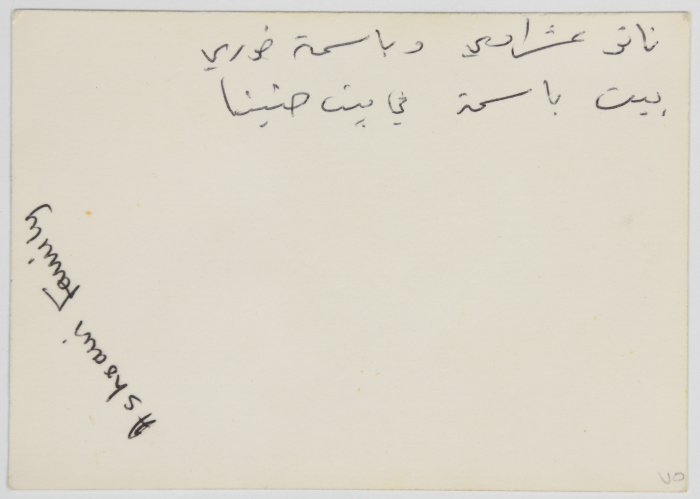 عشراوي وباسمة خوري
بيت باسمة في بيت حنينا
Ashrawi Family
٧٥